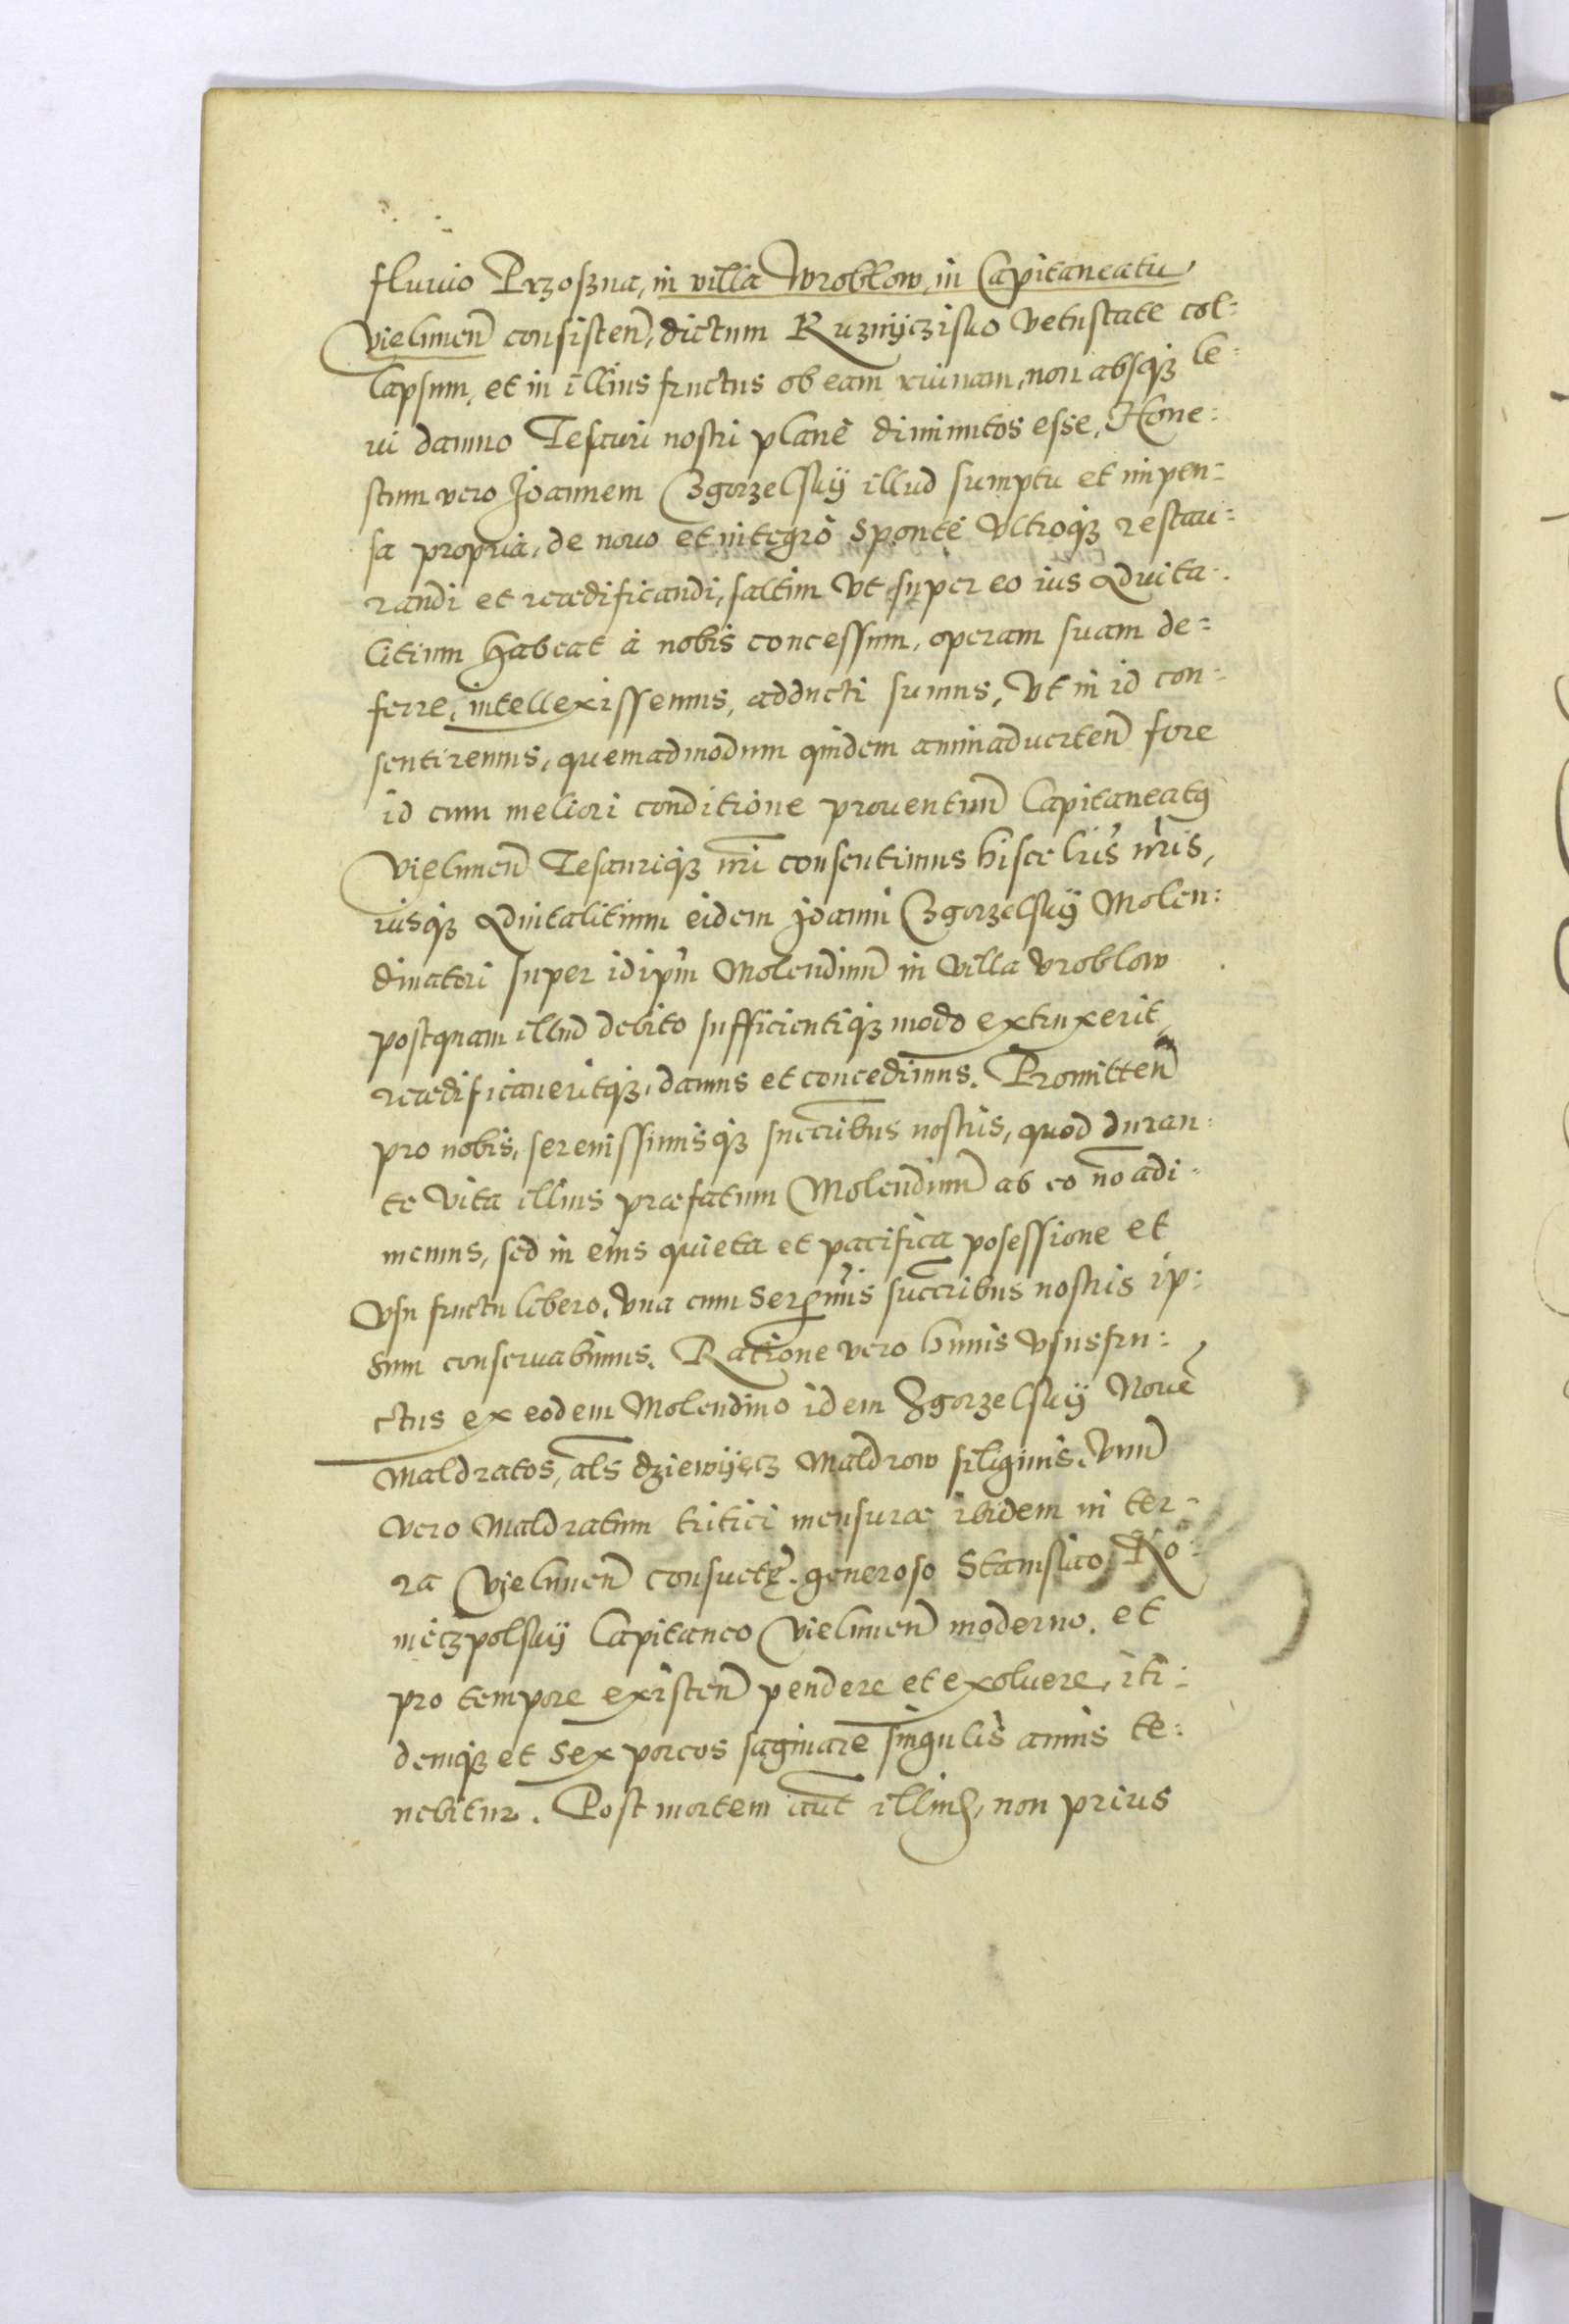 fluuio Przoszna, in villa Wroblow, in Capitaneatu
Vielunen̄ consisten̄, dictum Kuznÿczisko vetustate col:
lapsum, et in illius fructus ob eam ruinam, non absqȝ le:
ui damno Tesauri nostri planè diminutos esse, Hone:
stum vero Joannem Zgorzelskÿ illud sumptu et impen:
sa propria, de nouo et integrò Spontè vltroqȝ restau:
randi et reædificandi, saltim vt super eo ius Aduita:
litium habeat à nobis concessum, operam suam de:
ferre, intellexissemus, adducti sumus, vt in id con:
sentiremus, quemadmodum quidem animaduerten̄ fore
id cum meliori conditione prouentuum̄ Capitaneatꝰ
Vielunen̄ Tesauriqȝ nr̄i consentimus hisce lr̄is nr̄is,
iusqȝ Aduitalitium eidem Joanni Zgorzelskÿ Molen:
dinatori super id ipm̄ Molendinum̄ in villa Vroblow
postquam illud debito sufficientiqȝ modo extruxerit,
reædificaueritqȝ, damus et concedimus. Promitten̄
pro nobis, serenissimisqȝ succribus nostris, quod duran:
te vita illius præfatum Molendinum̄ ab eo no̅ adi:
memus, sed in eius quieta et pacifica posessione et
vsu fructu libero, vna cum Serenmis̄ succribus nostris ip:
sum conseruabimus. Ratione vero huius vsusfru:
ctus ex eodem Molendino idem Zgorzelskÿ Noue̅
Maldratos, als̄ dziewÿęcz Maldrow siliginis, vnum̄
vero Maldratum tritici mensuræ ibidem in ter:
ra Vielunen̄ consuetę. generoso Stanislao Ko:
nieczpolskÿ Capitaneo Vielunen̄ moderno, et
pro tempore existen̄ pendere et exoluere, iti:
demqȝ et Sex porcos saginare singulis annis te:
nebitur. Post mortem aut̄ illius, non prius